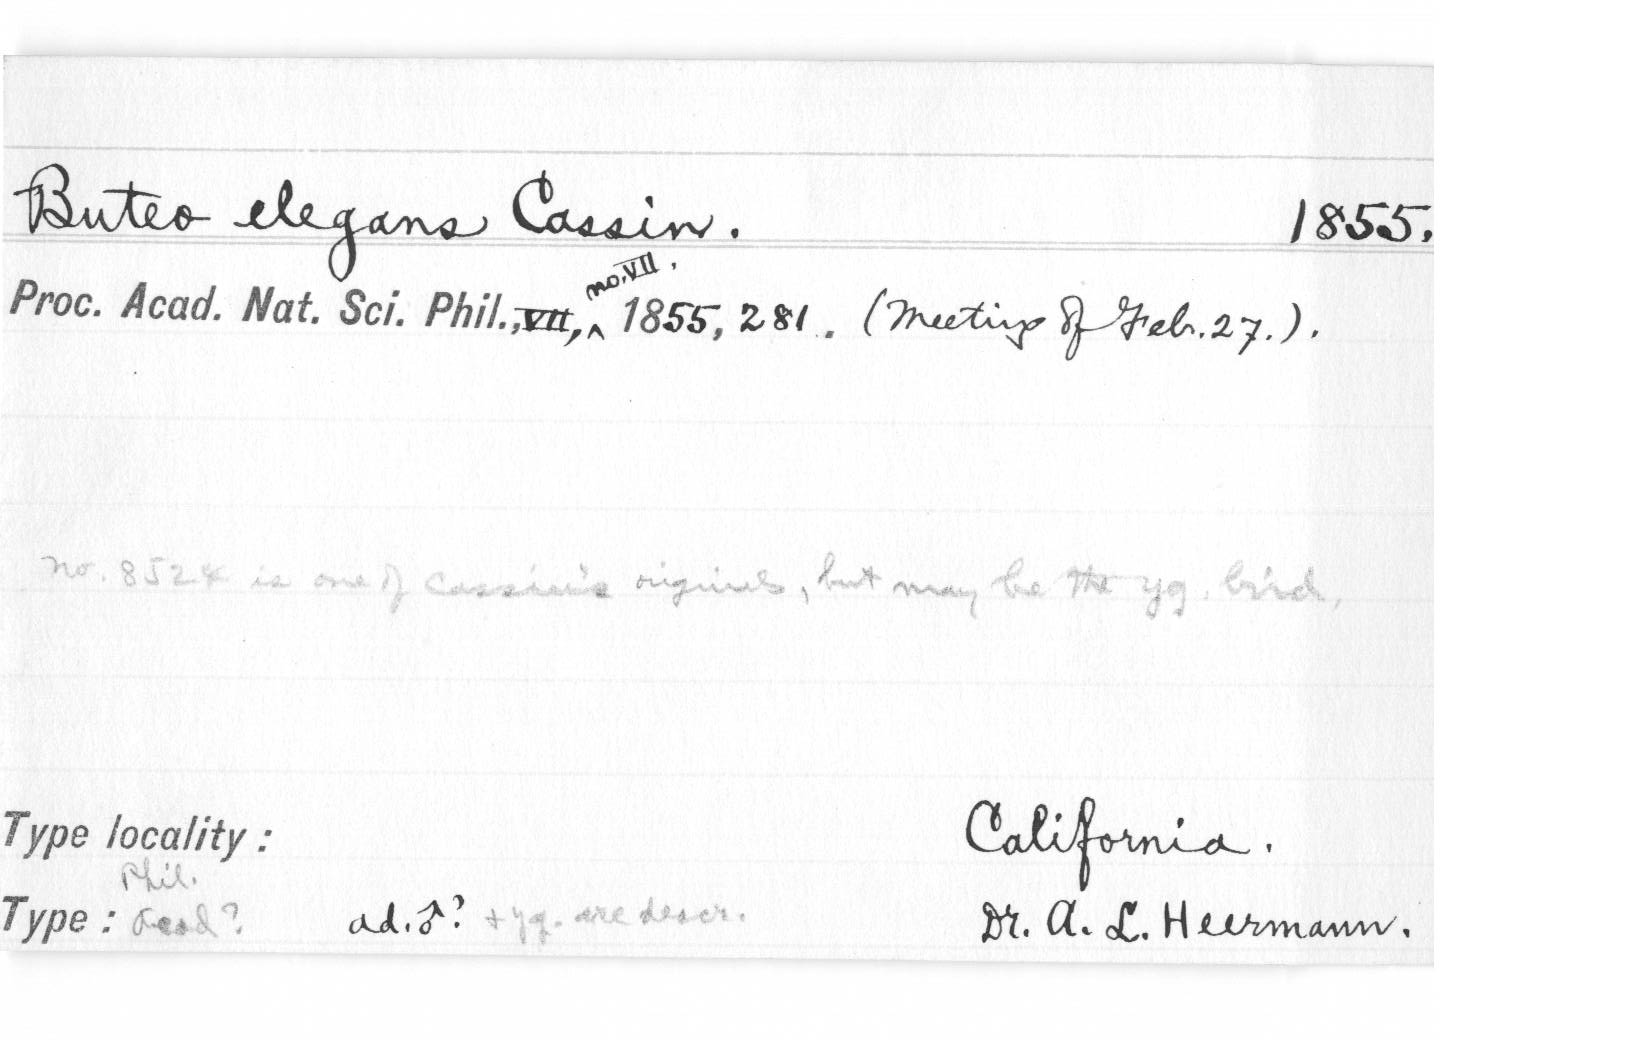 Buteo elegans Cassin. 1855.
no. VII,
Proc. Acad. Nat. Sci. Phil., VII, ^ 1855, 281. (Meeting of Febr. 27.).
No. 8524 is one of Cassin's originals, but may be the yg. bird,
Type locality: California.
Phil.
Type: Acad? ad. ♂? + yg. are descr. Dr. A. L. Heermann.